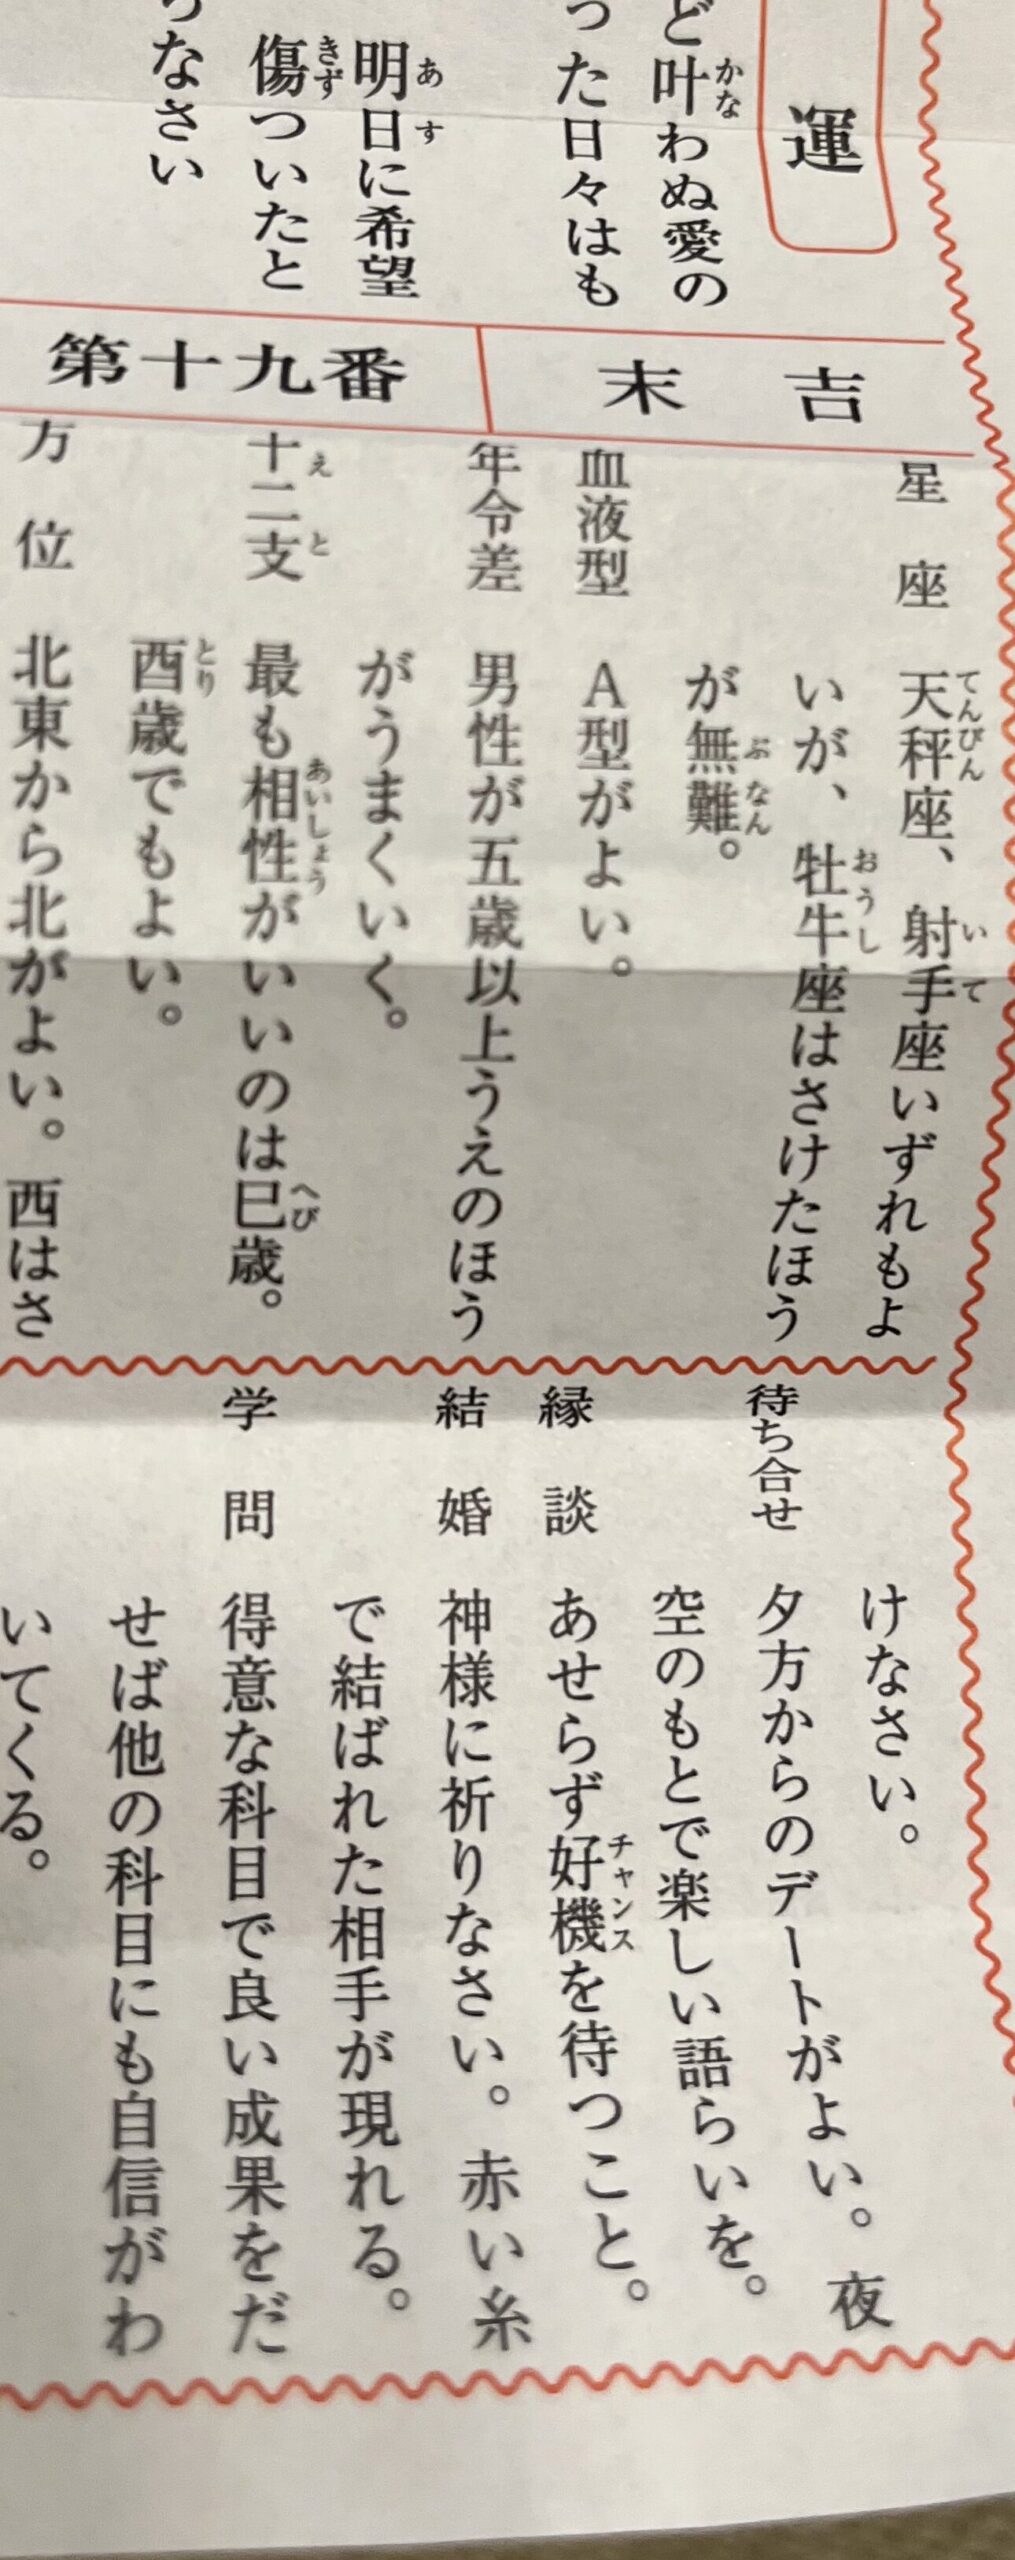 運
ど叶わぬ愛の
った日々はも
明日に希望
傷ついたと
うなさい
末吉
第十九番
星座 天秤座、射手座いずれもよ
いが、牡牛座はさけたほう
が無難。
血液型 A型がよい。
年令差 男性が五歳以上うえのほう
がうまくいく。
十二支 最も相性がいいのは巳歳。
酉歳でもよい。
方位 北東から北がよい。西はさ
けなさい。
待ち合せ 夕方からのデートがよい。夜
空のもとで楽しい語らいを。
縁談 あせらず好機を待つこと。
結婚 神様に祈りなさい。赤い糸
で結ばれた相手が現れる。
学問 得意な科目で良い成果をだ
せば他の科目にも自信がわ
いてくる。